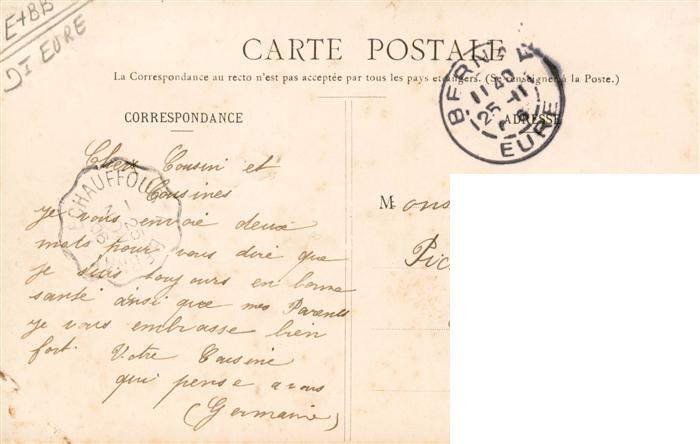 E+BB
DT EURE
CARTE POSTALE
La Correspondance au recto n'est pas acceptée par tous les pays etrangers. (Se renseigner à la Poste.)
CORRESPONDANCE
ADRESSE
BERNAY
11 40
25 -11
EURE
ECHAUFFOUR A BERNAY
25
06
Chers Cousin et
Cousines
je vous envoie deux
mots pour vous dire que
je suis toujours en bonne
santé ainsi que mes Parents
je vous embrasse bien
fort. Votre Cousine
qui pense a vous
(Germaine)
Mons
Pic